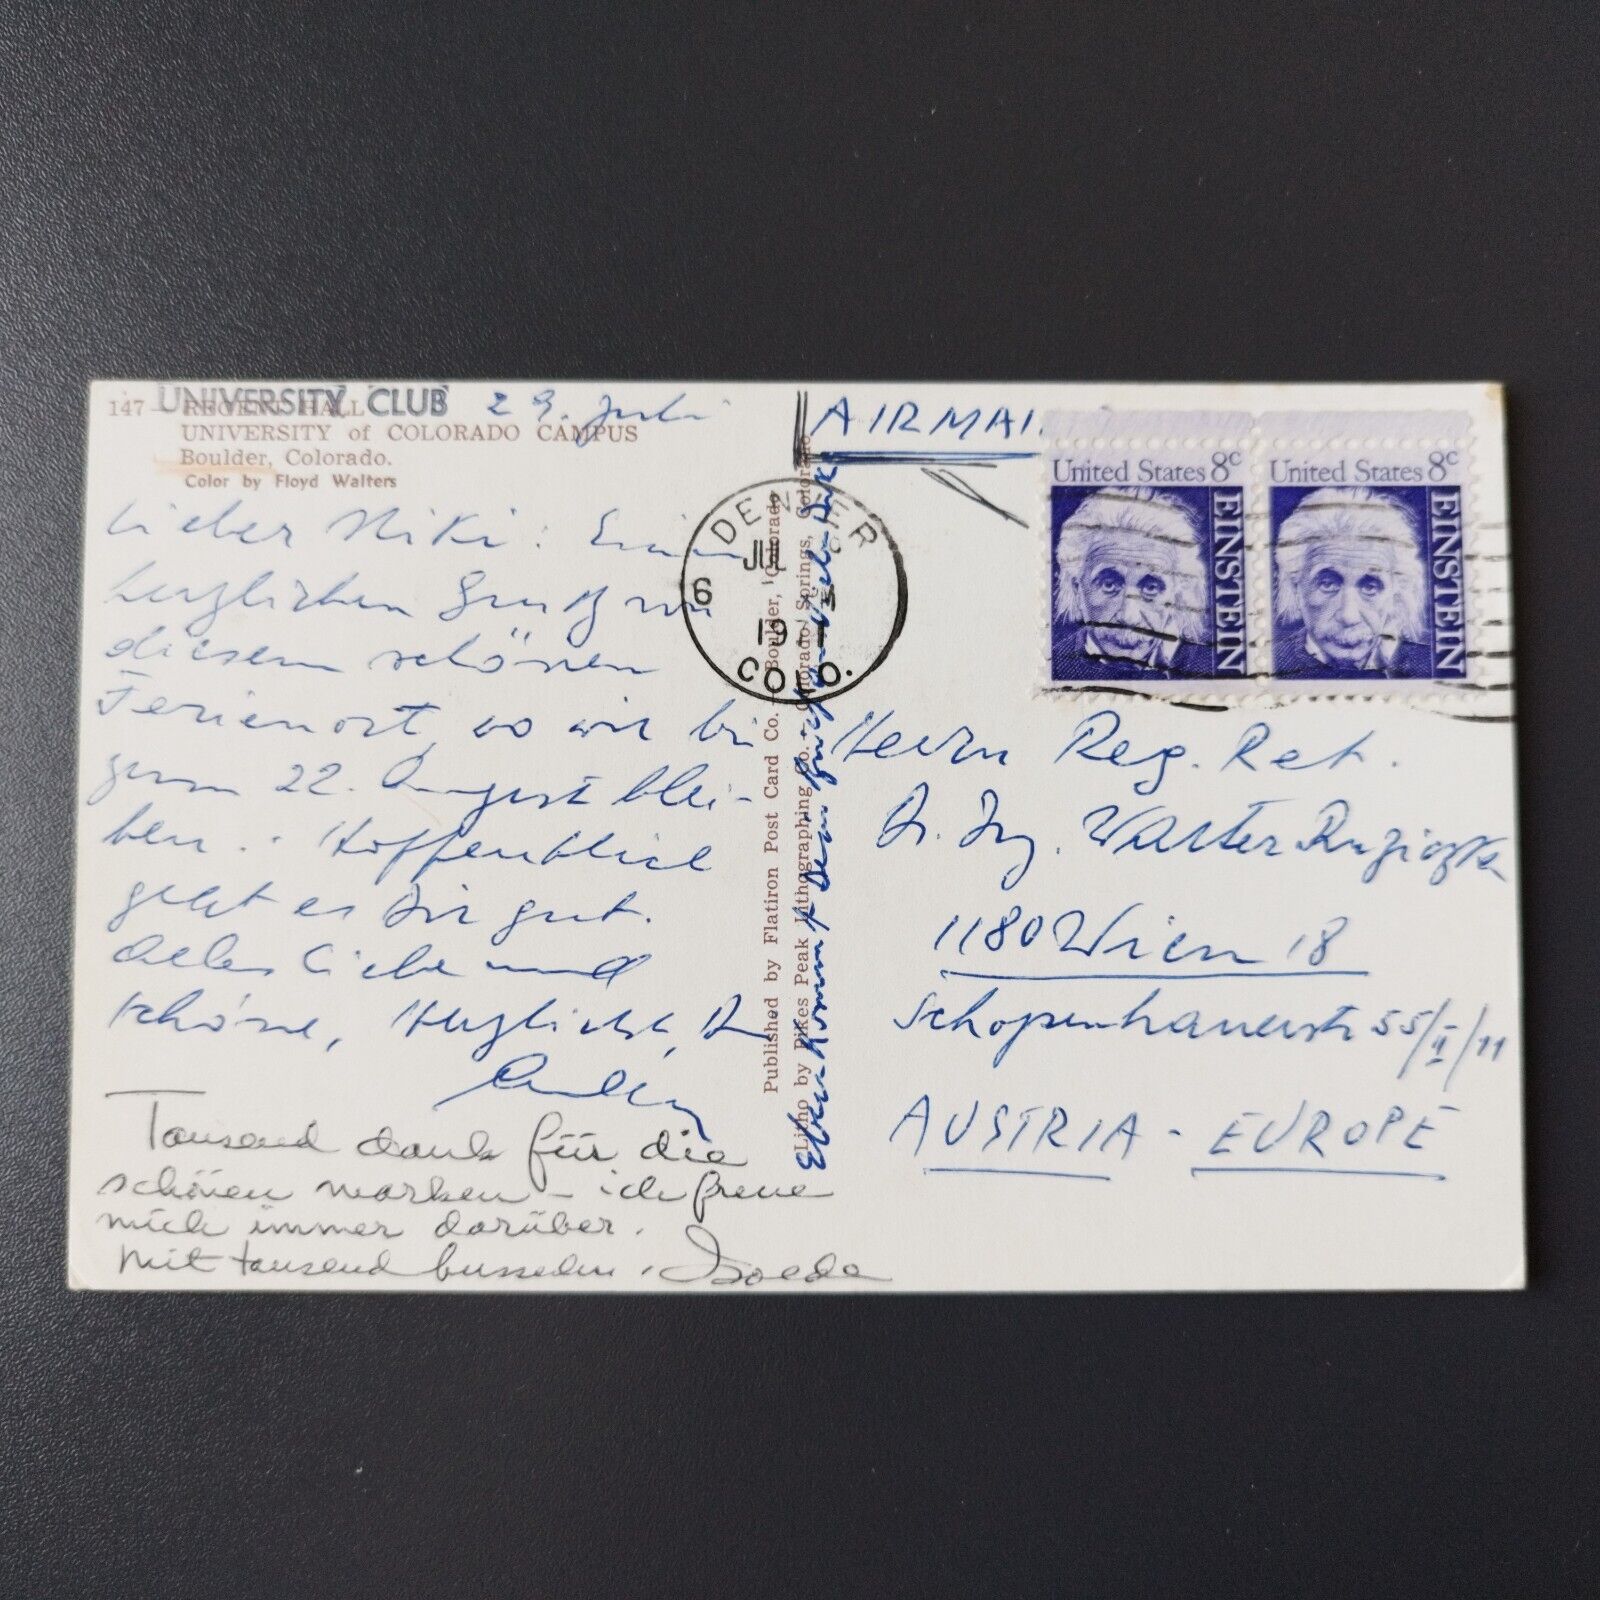 147 - REGENT HALL
UNIVERSITY CLUB
UNIVERSITY of COLORADO CAMPUS
Boulder, Colorado.
Color by Floyd Walters
29. Juli
Lieber Niki: Einen
herzlichen Gruß von
diesem schönen
Ferienort, wo wir bis
zum 22. August blei-
ben. Hoffentlich
geht es Dir gut.
Alles Liebe und
Schöne, Herzlichst, Dein
Tausend dank für die
schönen marken - ich freue
mich immer darüber.
Mit tausend busseln, Isolde
Published by Flatiron Post Card Co. - Boulder, Colorado
Litho by Pikes Peak Lithographing Co. - Colorado Springs, Colorado
Eben kommt Dein
DENVER
JUL
6
19
COLO.
AIRMAIL
United States 8c
EINSTEIN
United States 8c
EINSTEIN
Herrn Reg. Rat.
Dr. Ing. Walter Ruziczka
1180 Wien 18
Schopenhauerstr 55/II/11
AUSTRIA - EUROPE